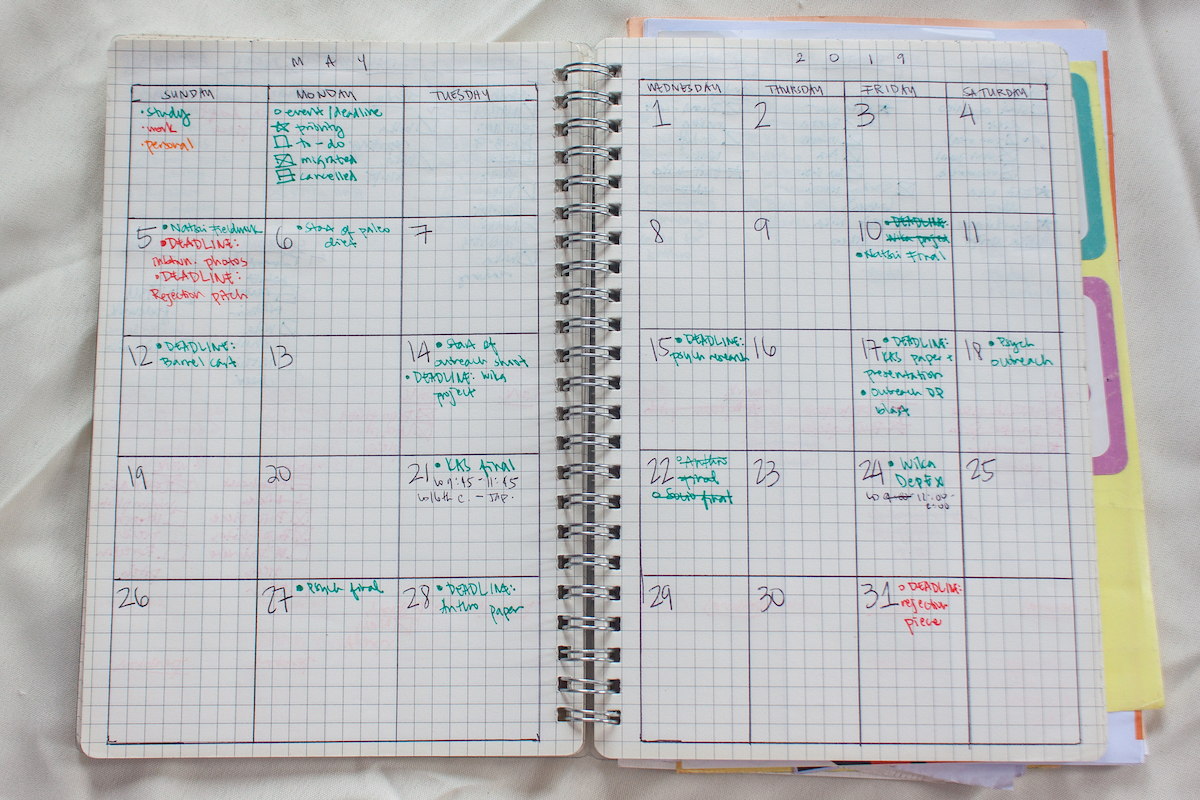 MAY
2019
SUNDAY
MONDAY
TUESDAY
WEDNESDAY
THURSDAY
FRIDAY
SATURDAY
• study
• work
• personal
○ event/deadline
☆ priority
to-do
migrated
cancelled
1
2
3
4
5
• DEADLINE:
photos
• DEADLINE:
Rejection pitch
6
• Start of paleo
diet
7
8
9
10
• DEADLINE:
Wika project
• NatSci Final
11
12
• DEADLINE:
Barrel cart
13
14
• Start of
outreach
• DEADLINE: Wika
project
15
• DEADLINE:
psych research
16
17
• DEADLINE:
KAS paper +
presentation
• Outreach DP
blast
18
• Psych
outreach
19
20
21
• KAS final
22
○ Anthro
final
○ Socio final
23
24
• Wika
DepEx
25
26
27
• Psych final
28
• DEADLINE:
Anthro paper
29
30
31
○ DEADLINE:
rejection
piece